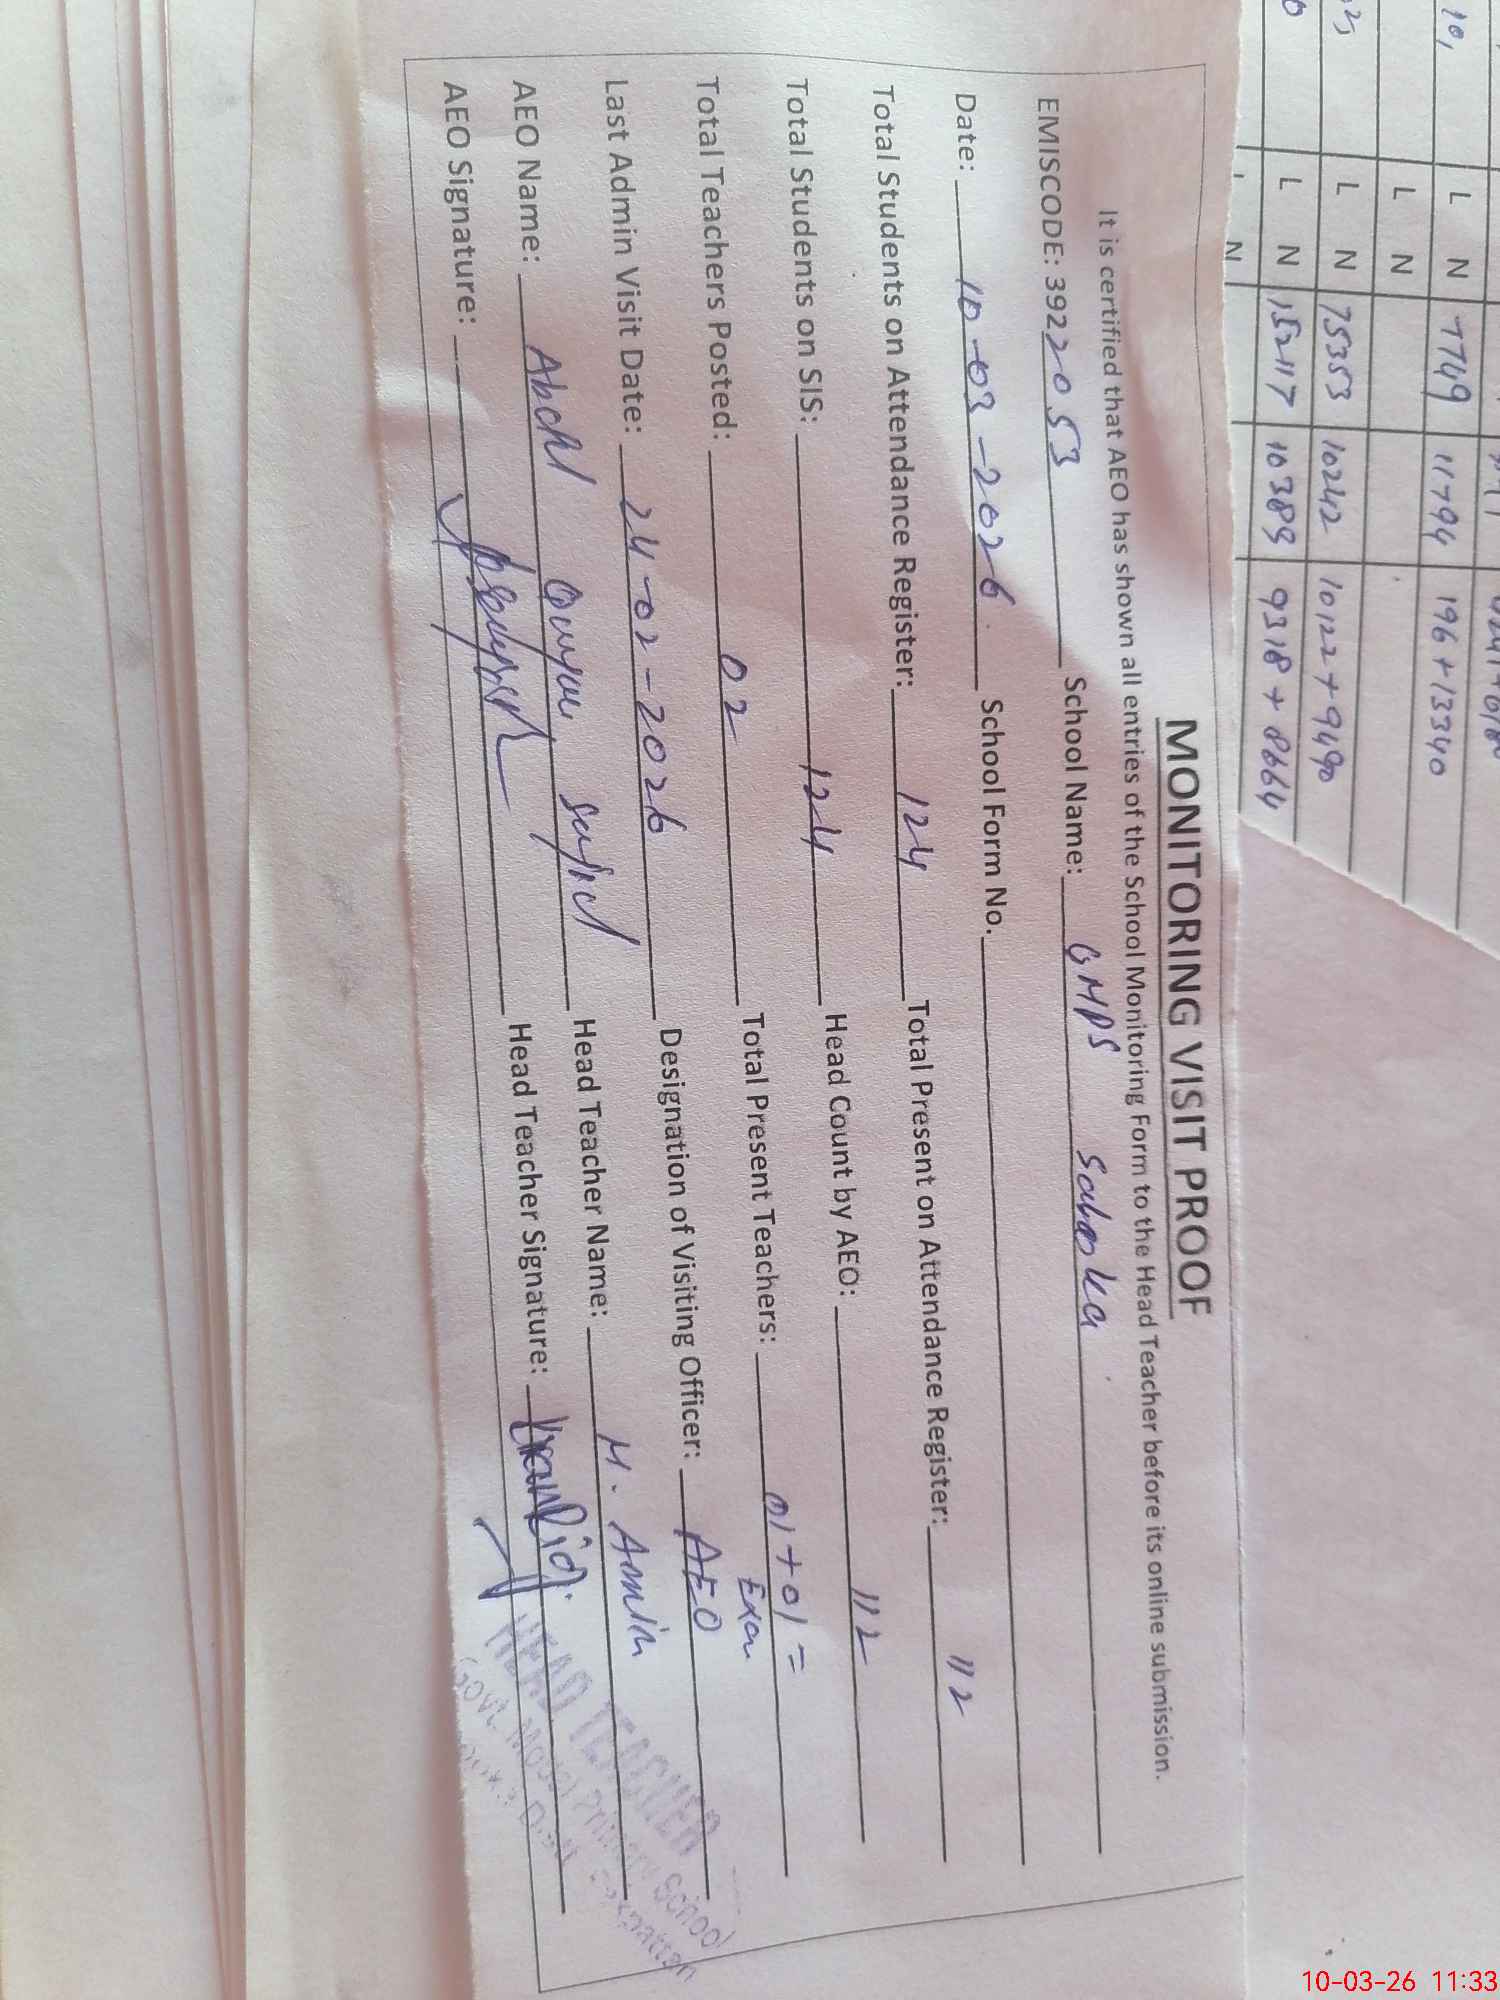 MONITORING VISIT PROOF
It is certified that AEO has shown all entries of the School Monitoring Form to the Head Teacher before its online submission.
EMISCODE: 39222053 School Name: GMPS
Date: 10-03-2026 School Form No.
Total Students on Attendance Register: 124 Total Present on Attendance Register: 112
Total Students on SIS: 124 Head Count by AEO: 112
Total Teachers Posted: 02 Total Present Teachers: 01+01=
Last Admin Visit Date: 24-02-2026 Designation of Visiting Officer: AEO
AEO Name: Head Teacher Name: M. Amin
AEO Signature: Head Teacher Signature:
HEAD TEACHER
Govt. Model Primary School
L N 7749 11794 196+13340
L N
L N 75353 10242 10122+9490
L N 152117 10389 9318+8664
N
10-03-26 11:33